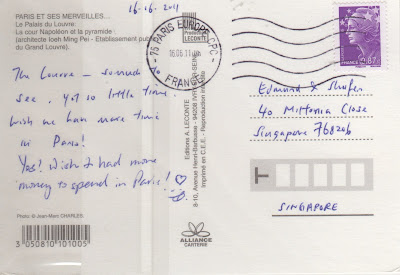 16-6-2011
PARIS ET SES MERVEILLES...
Le Palais du Louvre :
La cour Napoléon et la pyramide
(architecte Ieoh Ming Pei - Etablissement public
du Grand Louvre).
The Louvre – so much
see, yet so little time
wish we have more time
in Paris!
Yes! Wish I had more
money to spend in Paris!
Photo: © Jean-Marc CHARLES
3 050810 101005
Production
LECONTE
Editions A. LECONTE
8-10, Avenue Henri-Barbusse - 94200 IVRY-SUR-SEINE
Imprimé en C.E.E. - Reproduction interdite
ALLIANCE
CARTERIE
75 PARIS EUROPE CPC
16.06.11
FRANCE
FRANCE
0,87
Edmund &
40 Mittonia Close
Singapore 768206
SINGAPORE